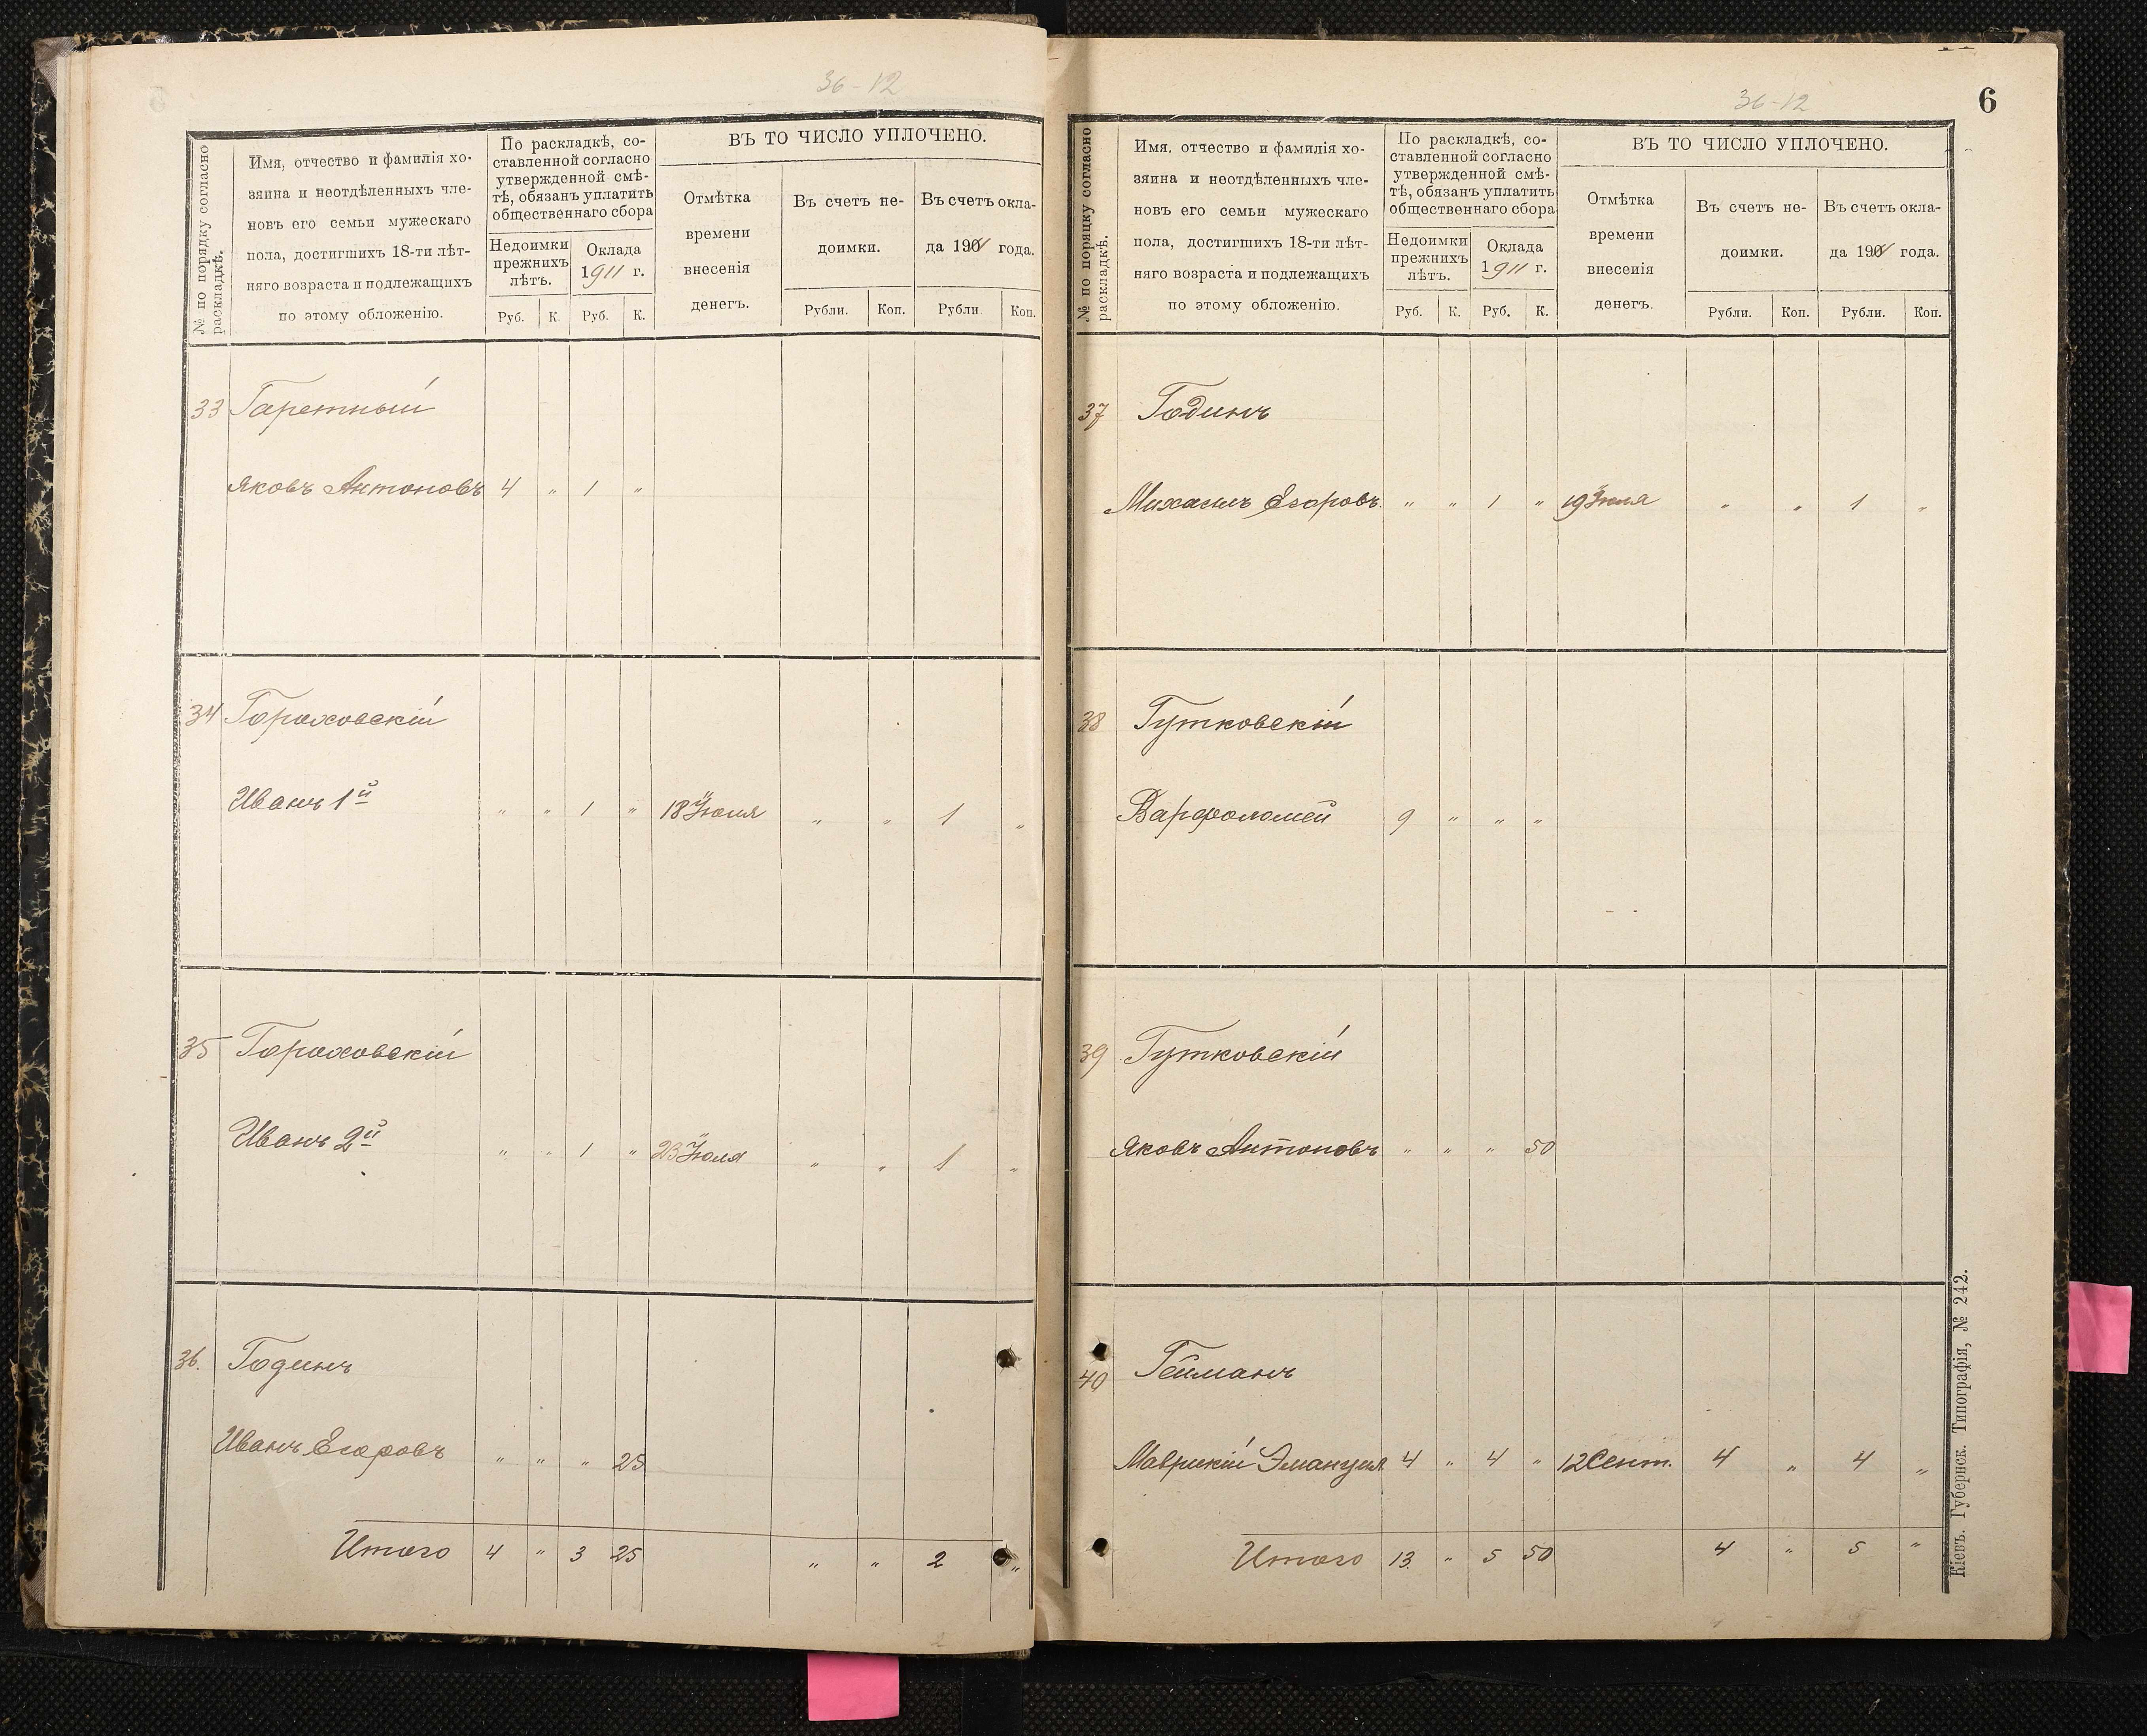 36-12
№ по порядку согласно
раскладкѣ.
Имя, отчество и фамилія хо-
зяина и неотдѣленныхъ чле-
новъ его семьи мужескаго
пола, достигшихъ 18-ти лѣт-
няго возраста и подлежащихъ
по этому обложенію.
По раскладкѣ, со-
ставленной согласно
утвержденной смѣ-
тѣ, обязанъ уплатить
общественнаго сбора
Недоимки
прежнихъ
лѣтъ.
Оклада
1911 г.
Руб. К. Руб. К.
ВЪ ТО ЧИСЛО УПЛОЧЕНО.
Отмѣтка
времени
внесенія
денегъ.
Въ счетъ не-
доимки.
Въ счетъ окла-
да 1901 года.
Рубли. Коп. Рубли. Коп.
33 Гаретный
Яковъ Антоновъ 4 „ 1 „
34 Гороховскій
Иванъ 1й „ „ 1 „ 18 Іюля „ „ 1 „
35 Гороховскій
Иванъ 2й „ „ 1 „ 23 Іюля „ „ 1 „
36. Годинъ
Иванъ Егоровъ „ „ „ 25
Итого 4 „ 3 25 „ „ 2 „
36-12
6
№ по порядку согласно
раскладкѣ.
Имя, отчество и фамилія хо-
зяина и неотдѣленныхъ чле-
новъ его семьи мужескаго
пола, достигшихъ 18-ти лѣт-
няго возраста и подлежащихъ
по этому обложенію.
По раскладкѣ, со-
ставленной согласно
утвержденной смѣ-
тѣ, обязанъ уплатить
общественнаго сбора
Недоимки
прежнихъ
лѣтъ.
Оклада
1911 г.
Руб. К. Руб. К.
ВЪ ТО ЧИСЛО УПЛОЧЕНО.
Отмѣтка
времени
внесенія
денегъ.
Въ счетъ не-
доимки.
Въ счетъ окла-
да 1901 года.
Рубли. Коп. Рубли. Коп.
37 Годинъ
Михаилъ Егоровъ „ „ 1 „ 19 Іюля „ „ 1 „
38 Гутковскій
Варфоломей 9 „ „ „
39 Гутковскій
Яковъ Антоновъ „ „ „ 50
40 Гейманъ
Маврикій Эмануил 4 „ 4 „ 12 Сент. 4 „ 4 „
Итого 13 „ 5 50 4 „ 5 „
Кіевъ. Губернск. Типографія, № 242.